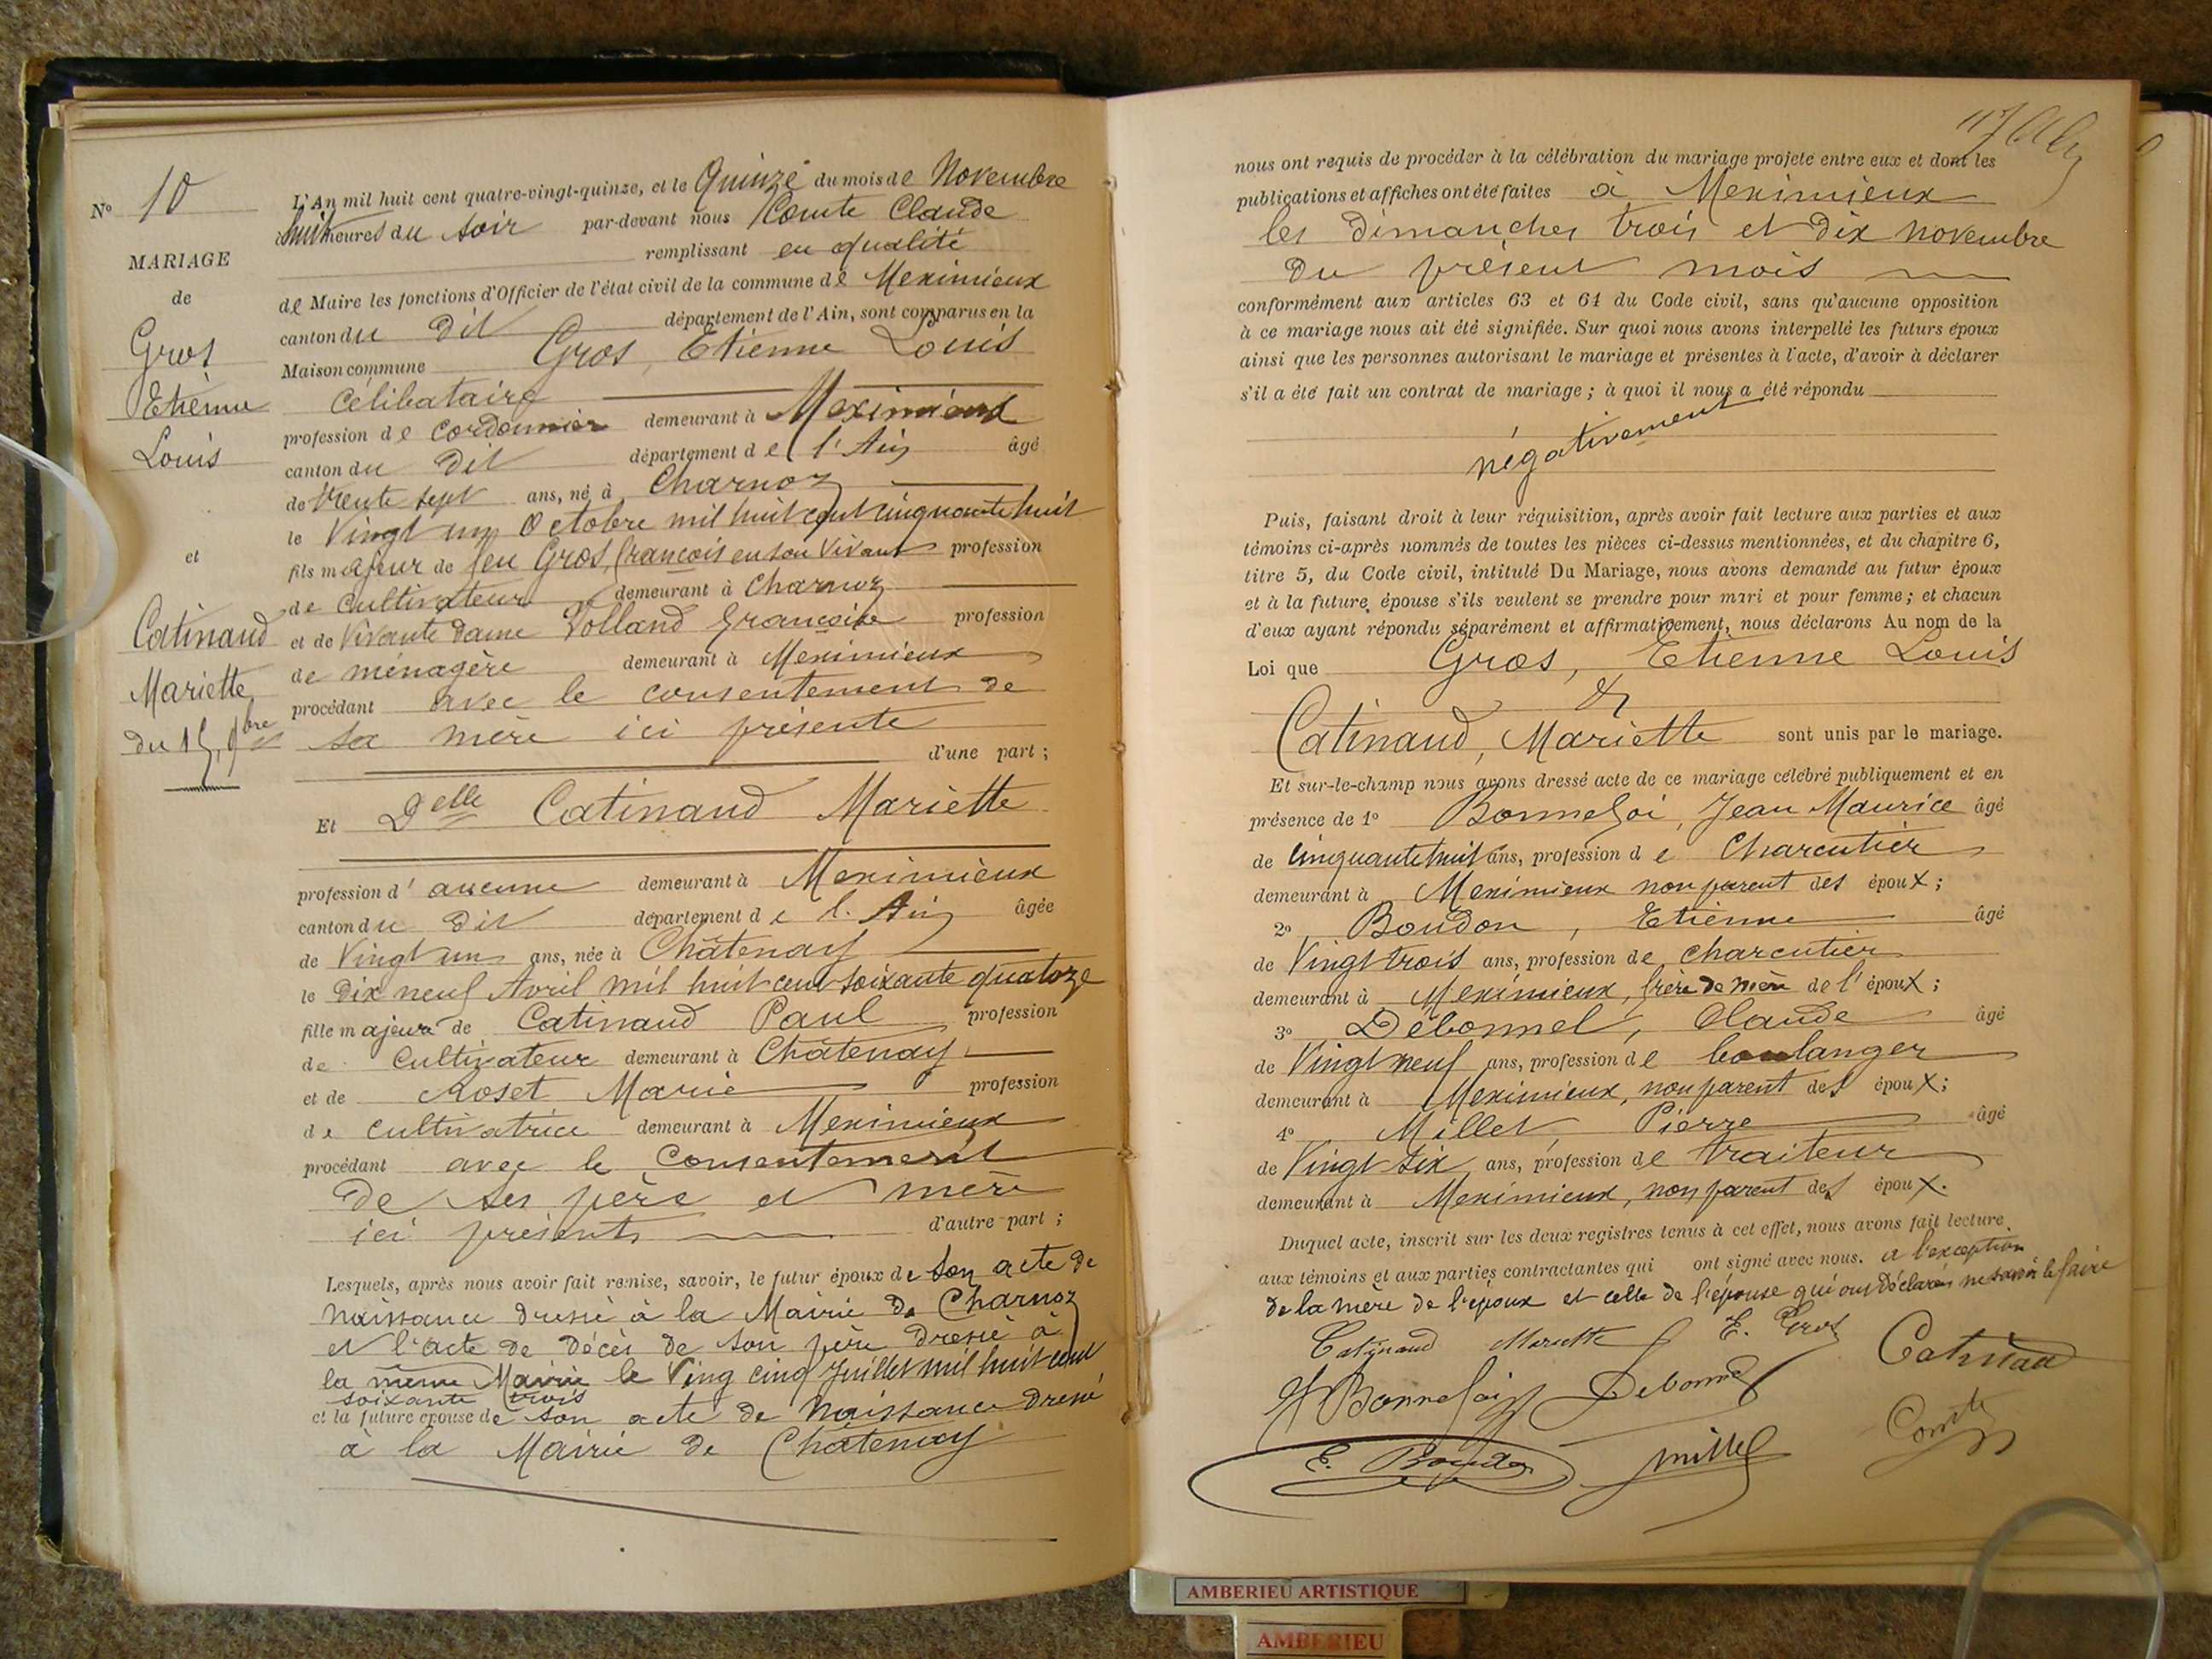 N° 10
MARIAGE
de
Gros
Etienne
Louis
et
Catinaud
Mariette
du 15 9bre
L'An mil huit cent quatre-vingt-quinze, et le Quinze du mois de Novembre
à huit heures du soir par-devant nous Comte Claude
remplissant en qualité
de Maire les fonctions d'Officier de l'état civil de la commune de Meximieux
canton du dit département de l'Ain, sont comparus en la
Maison commune Gros, Etienne Louis
Célibataire
profession de cordonnier demeurant à Meximieux
canton du dit département de l'Ain âgé
de trente sept ans, né à Charnoz
le Vingt un Octobre mil huit cent cinquante huit
fils majeur de feu Gros, François en son vivant profession
de cultivateur demeurant à Charnoz
et de vivante dame Volland Françoise profession
de ménagère demeurant à Meximieux
procédant avec le consentement de
sa mère ici présente
d'une part ;
Et Delle Catinaud Mariette
profession d' aucune demeurant à Meximieux
canton du dit département de l'Ain âgée
de Vingt un ans, née à Châtenay
le dix neuf Avril mil huit cent soixante quatorze
fille majeure de Catinaud Paul profession
de Cultivateur demeurant à Châtenay
et de Roset Marie profession
de cultivatrice demeurant à Meximieux
procédant avec le consentement
de ses père et mère
ici présents d'autre part ;
Lesquels, après nous avoir fait remise, savoir, le futur époux de son acte de
naissance dressé à la Mairie de Charnoz
et l'acte de décès de son père dressé à
la même Mairie le Ving cinq Juillet mil huit cent
soixante trois
et la future épouse de son acte de naissance dressé
à la Mairie de Châtenay
nous ont requis de procéder à la célébration du mariage projeté entre eux et dont les
publications et affiches ont été faites à Meximieux
les dimanches trois et dix novembre
du présent mois
conformément aux articles 63 et 64 du Code civil, sans qu'aucune opposition
à ce mariage nous ait été signifiée. Sur quoi nous avons interpellé les futurs époux
ainsi que les personnes autorisant le mariage et présentes à l'acte, d'avoir à déclarer
s'il a été fait un contrat de mariage ; à quoi il nous a été répondu
négativement
Puis, faisant droit à leur réquisition, après avoir fait lecture aux parties et aux
témoins ci-après nommés de toutes les pièces ci-dessus mentionnées, et du chapitre 6,
titre 5, du Code civil, intitulé Du Mariage, nous avons demandé au futur époux
et à la future épouse s'ils veulent se prendre pour mari et pour femme ; et chacun
d'eux ayant répondu séparément et affirmativement, nous déclarons Au nom de la
Loi que Gros, Etienne Louis
&
Catinaud, Mariette sont unis par le mariage.
Et sur-le-champ nous avons dressé acte de ce mariage célébré publiquement et en
présence de 1° Bonnefoi, Jean Maurice âgé
de cinquante huit ans, profession de Charcutier
demeurant à Meximieux non parent des époux ;
2° Boudon, Etienne âgé
de Vingt trois ans, profession de charcutier
demeurant à Meximieux, frère de mère de l'époux ;
3° Debonnel, Claude âgé
de Vingt neuf ans, profession de boulanger
demeurant à Meximieux, non parent des époux ;
4° Millet, Pierre âgé
de Vingt six ans, profession de traiteur
demeurant à Meximieux, non parent des époux.
Duquel acte, inscrit sur les deux registres tenus à cet effet, nous avons fait lecture
aux témoins et aux parties contractantes qui ont signé avec nous. a l'exception
de la mère de l'époux et celle de l'épouse qui ont déclaré ne savoir le faire
Catinaud Mariette E. Gros
Catinaud
Bonnefoi Debonnel
E. Boudon Millet Comte
AMBERIEU ARTISTIQUE
AMBERIEU